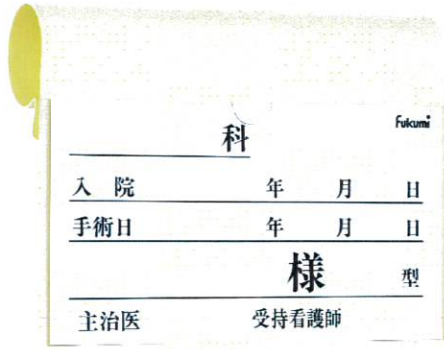 Fukumi
科
入院 年 月 日
手術日 年 月 日
様 型
主治医 受持看護師